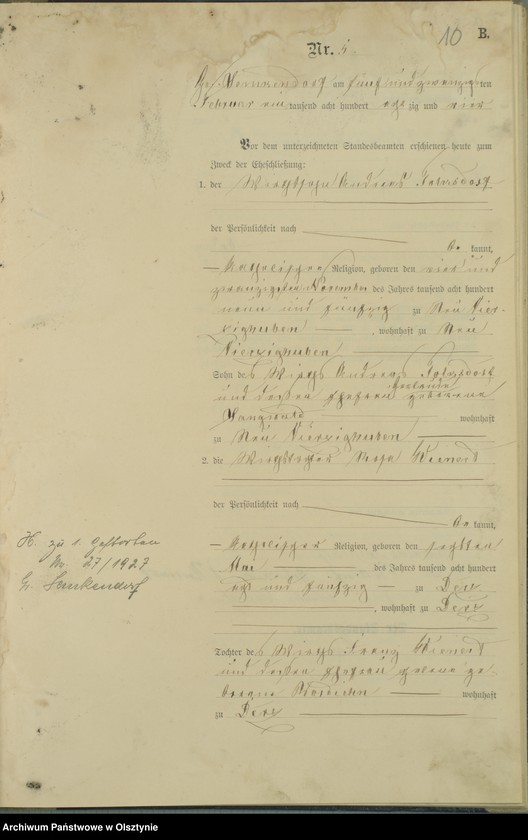 10 B.
Nr. 5.
am fünf und zwanzigsten
Februar ein tausend acht hundert acht zig und vier
Vor dem unterzeichneten Standesbeamten erschienen heute zum
Zweck der Eheschließung:
1. der Wirthssohn Andreas
der Persönlichkeit nach
be kannt,
katholischer Religion, geboren den vier und
zwanzigsten November des Jahres tausend acht hundert
neun und fünfzig zu Neu Vier-
zighuben , wohnhaft zu Neu
Vierzighuben
Sohn des Wirths Andreas
und dessen Ehefrau geborene
wohnhaft
zu Neu Vierzighuben
2. die Wirthstochter Rosa
der Persönlichkeit nach
be kannt,
katholischer Religion, geboren den sechsten
Mai des Jahres tausend acht hundert
acht und fünfzig zu Derz
, wohnhaft zu Derz
H. zu 1. Gestorben
Nr. 27/1927
Tochter des Wirths Franz
und dessen Ehefrau ge-
borene wohnhaft
zu Derz
Archiwum Państwowe w Olsztynie